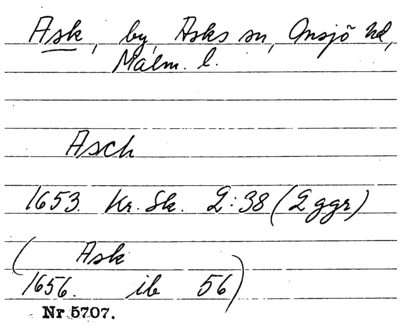 Ask, by, Asks sn, Onsjö hd,
Malm. l.
Asch
1653. Kr. Sk. 2:38 (2 ggr)
( Ask
1656. ib 56)
Nr 5707.